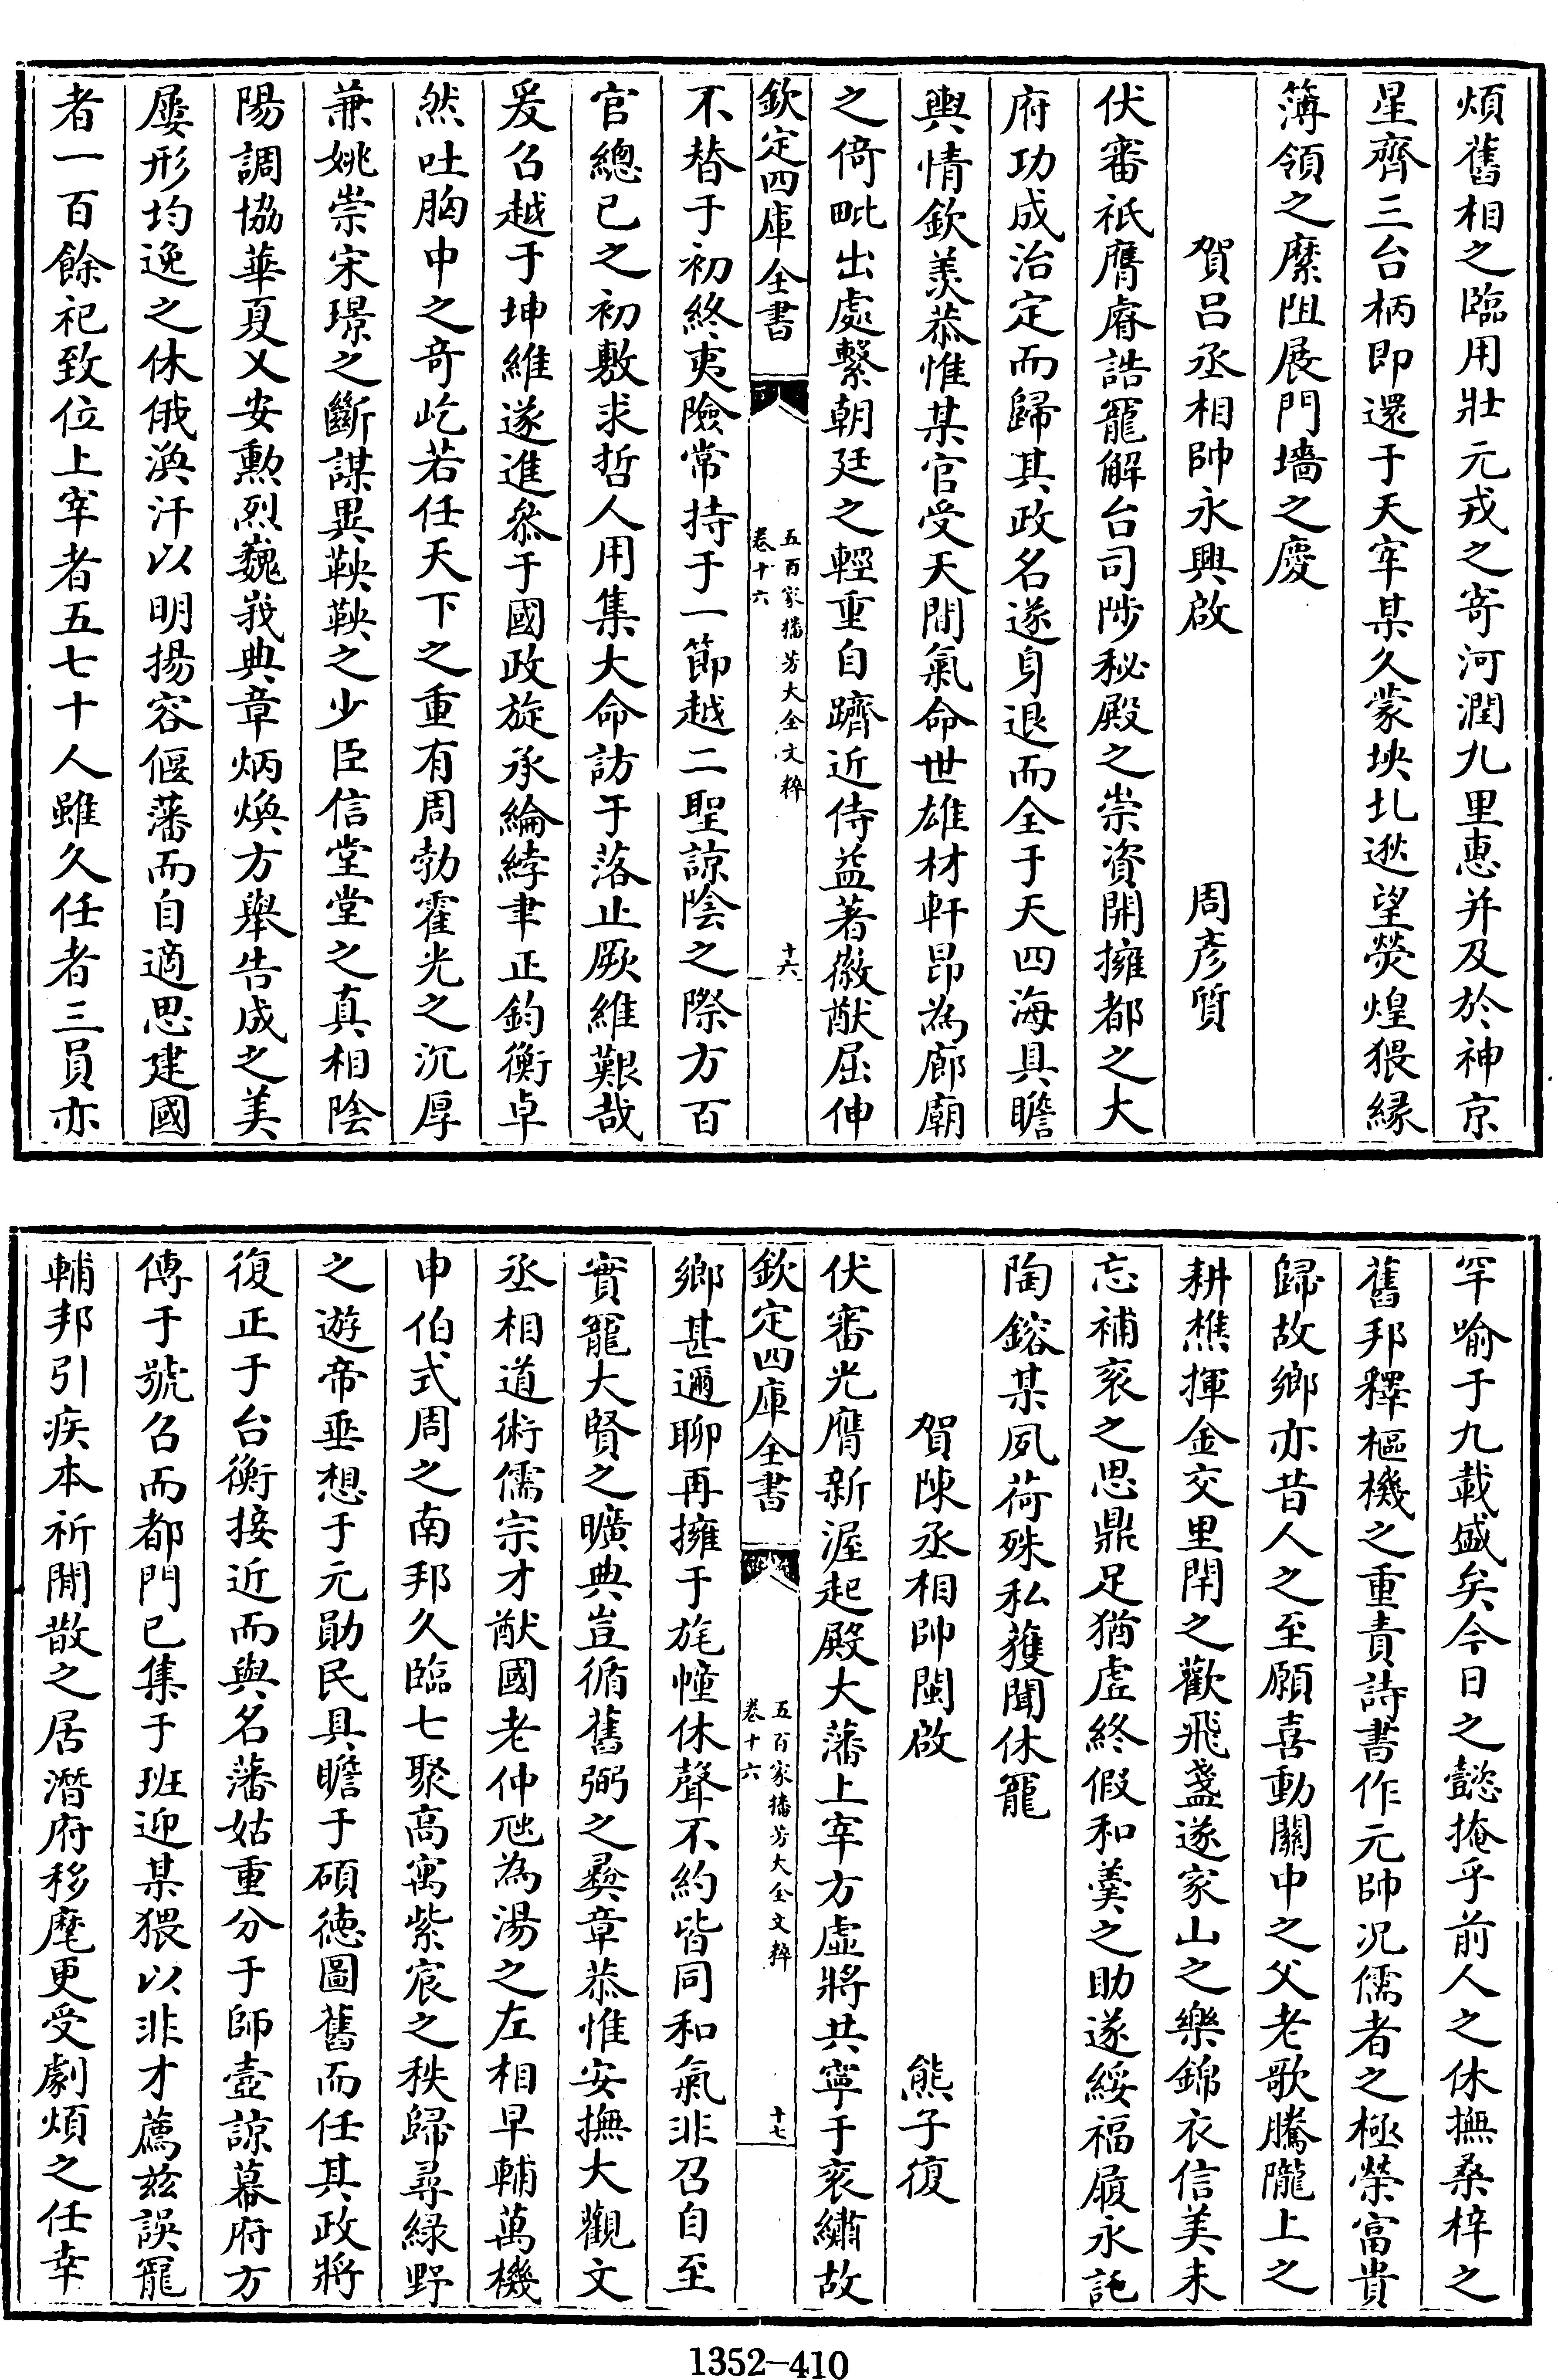 煩舊相之臨用壯元戎之寄河潤九里惠并及於神京
星齊三台柄即還于天宰某久蒙坱圠逖望熒煌猥縁
簿領之縻阻展門墻之慶
賀呂丞相帥永興啟　周彦質
伏審祇膺睿誥寵解台司陟秘殿之崇資開擁都之大
府功成治定而歸其政名遂身退而全于天四海具瞻
輿情欽羡恭惟某官受天間氣命世雄材軒昂為廊廟
之倚毗出處繫朝廷之輕重自躋近侍益著徽猷屈伸
欽定四庫全書
五百家播芳大全文粹
卷十六
十六
不替于初終夷險常持于一節越二聖諒陰之際方百
官總已之初敷求哲人用集大命訪于落止厥維艱哉
爰召越于坤維遂進叅于國政旋承綸綍聿正鈞衡卓
然吐胸中之奇屹若任天下之重有周勃霍光之沉厚
兼姚崇宋璟之斷謀異鞅鞅之少臣信堂堂之真相陰
陽調協華夏乂安勲烈巍峩典章炳煥方舉告成之美
屢形均逸之休俄渙汗以明揚容偃藩而自適思建國
者一百餘祀致位上宰者五七十人雖久任者三員亦
罕喻于九載盛矣今日之懿掩乎前人之休撫桑梓之
舊邦釋樞機之重責詩書作元帥况儒者之極榮富貴
歸故鄉亦昔人之至願喜動關中之父老歌騰隴上之
耕樵揮金交里閈之歡飛盞遂家山之樂錦衣信美未
忘補衮之思鼎足猶虚終假和羮之助遂綏福履永託
陶鎔某夙荷殊私獲聞休寵
賀陳丞相帥閩啟　熊子復
伏審光膺新渥起殿大藩上宰方虚將共寧于衮繡故
欽定四庫全書
五百家播芳大全文粹
卷十六
十七
鄉甚邇聊再擁于旄幢休聲不約皆同和氣非召自至
實寵大賢之曠典豈循舊弼之彛章恭惟安撫大觀文
丞相道術儒宗才猷國老仲虺為湯之左相早輔萬機
申伯式周之南邦久臨七聚高寓紫宸之秩歸尋緑野
之遊帝垂想于元勛民具瞻于碩徳圖舊而任其政將
復正于台衡接近而與名藩姑重分于師壼諒幕府方
傳于號召而都門已集于班迎某猥以非才薦兹誤寵
輔邦引疾本祈閒散之居潛府移麾更受劇煩之任幸
1352-410